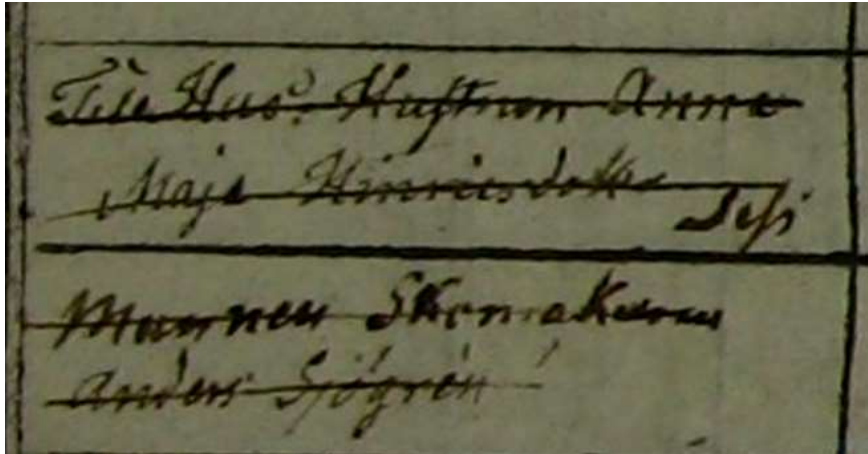 Hus: Hustrun Anna
Maja Hinricsdotter
Mannen Skomakaren
Anders Sjögrén